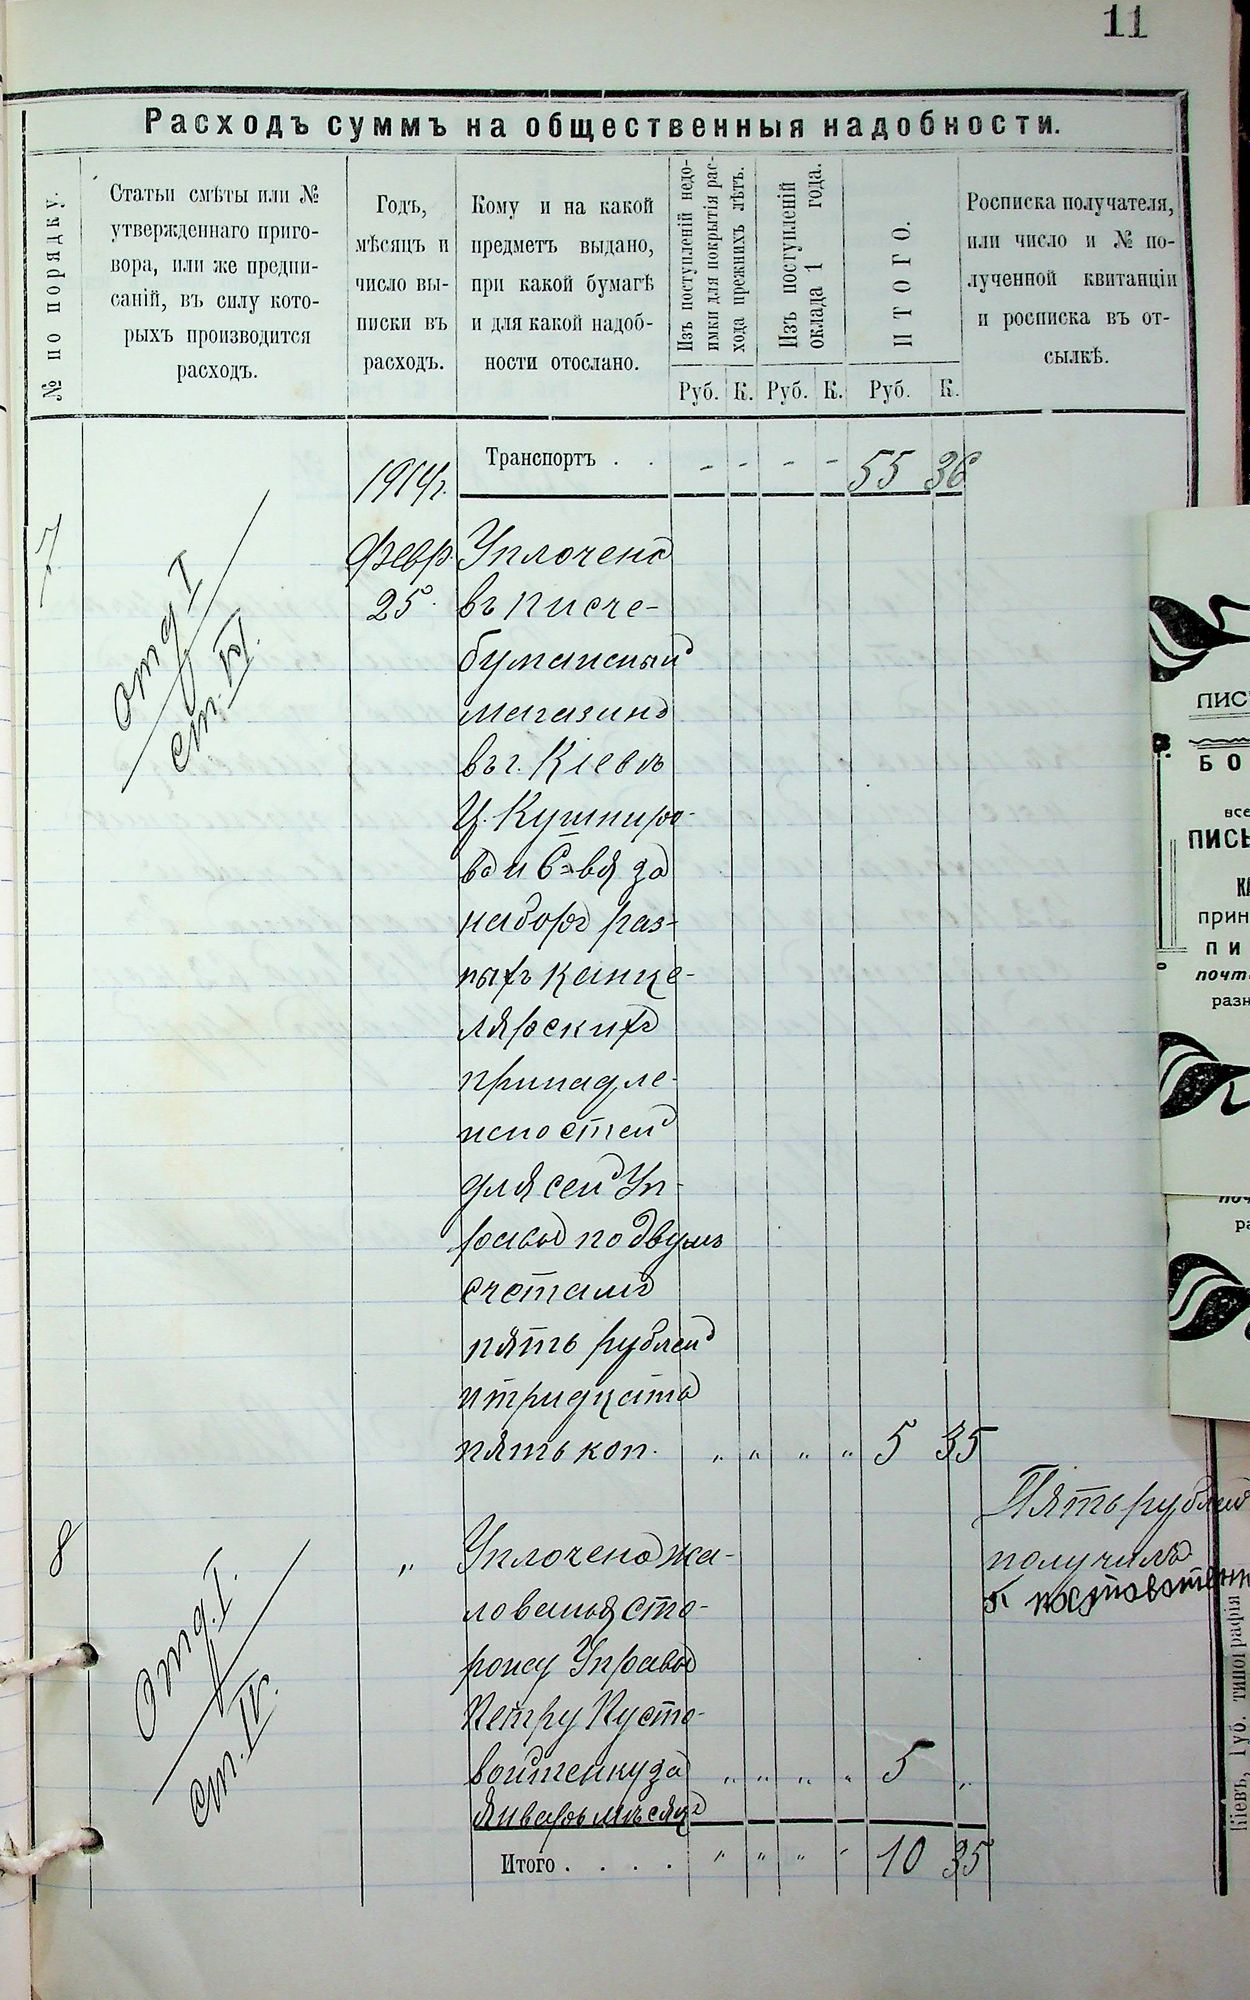 11
Расходъ суммъ на общественныя надобности.
№ по порядку.
Статьи смѣты или №
утвержденнаго приго-
вора, или же предпи-
саній, въ силу кото-
рыхъ производится
расходъ.
Годъ,
мѣсяцъ и
число вы-
писки въ
расходъ.
Кому и на какой
предметъ выдано,
при какой бумагѣ
и для какой надоб-
ности отослано.
Изъ поступленій недо-
имки для покрытія рас-
хода прежнихъ лѣтъ.
Изъ поступленій
оклада 1 года.
ИТОГО.
Росписка получателя,
или число и № по-
лученной квитанціи
и росписка въ от-
сылкѣ.
Руб. К. Руб. К. Руб. К.
1914г. Транспортъ . . - - - - 55 36
7 отд I
ст. VI.
Февр.
25
Уплочено
въ писче-
бумажный
магазинъ
въ г. Кіевѣ
Ц. Кушниро-
ва и С-вья за
наборъ раз-
ныхъ канце-
лярскихъ
принадле-
жностей
для сей Уп-
равы по двумъ
счетамъ
пять рублей
и тридцать
пять коп. „ „ „ „ 5 35
8 Отд. I.
ст. IV.
„
Уплочено жа-
лованья сто-
рожу Управы
Петру Пусто-
войтенку за „ „ „ „ 5 „
январь мѣсяцъ
Пять рублей
получилъ
Итого . . . . „ „ „ „ 10 35
Кіевъ, Губ. типографія
ПИС
БО
все
ПИСЬ
прин
ПИ
почт
разн